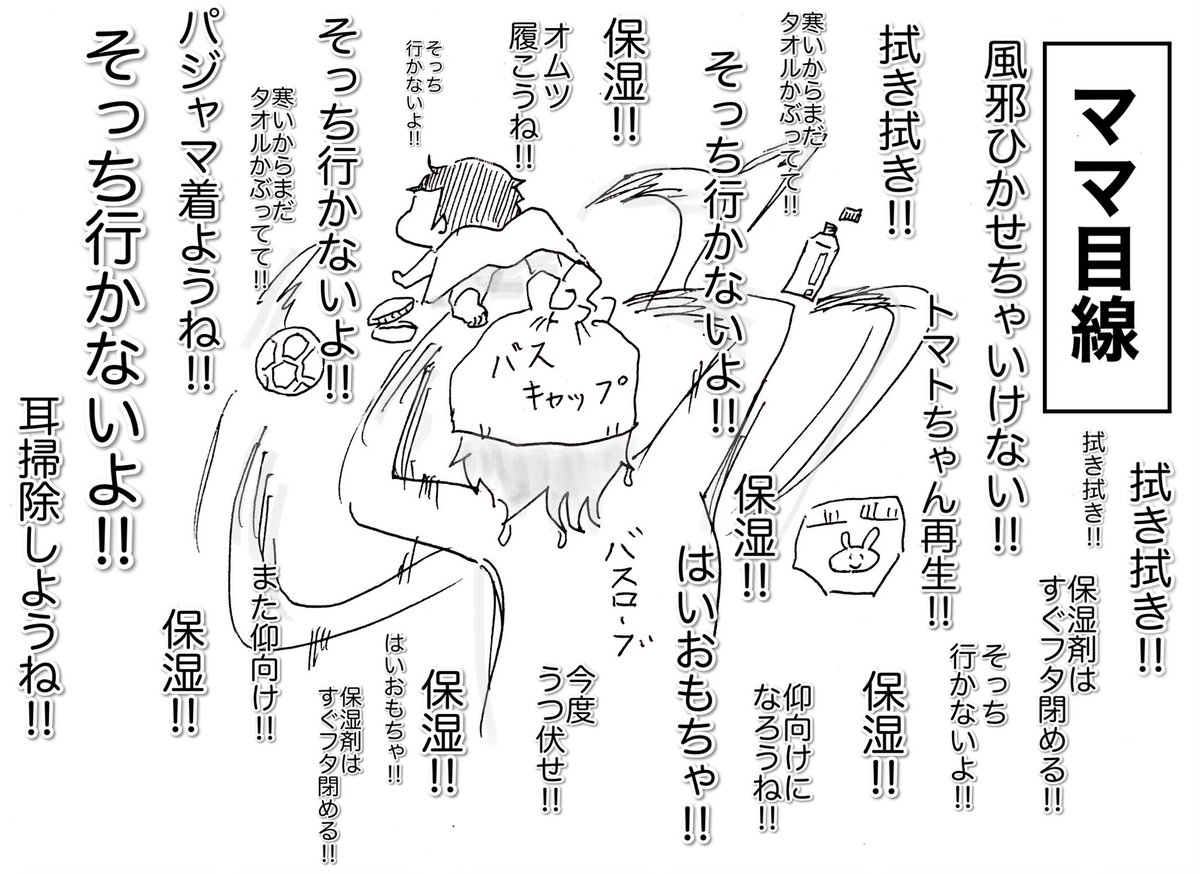 ママ目線
拭き拭き!!
拭き拭き!!
保湿剤は
すぐフタ閉める!!
風邪ひかせちゃいけない!!
そっち
行かないよ!!
トマトちゃん再生!!
拭き拭き!!
保湿!!
寒いからまだ
タオルかぶってて!!
仰向けに
なろうね!!
保湿!!
そっち行かないよ!!
はいおもちゃ!!
保湿!!
バスローブ
オムツ
履こうね!!
今度
うつ伏せ!!
バス
キャップ
そっち
行かないよ!!
保湿!!
はいおもちゃ!!
そっち行かないよ!!
保湿剤は
すぐフタ閉める!!
寒いからまだ
タオルかぶってて!!
また仰向け!!
パジャマ着ようね!!
保湿!!
そっち行かないよ!!
耳掃除しようね!!